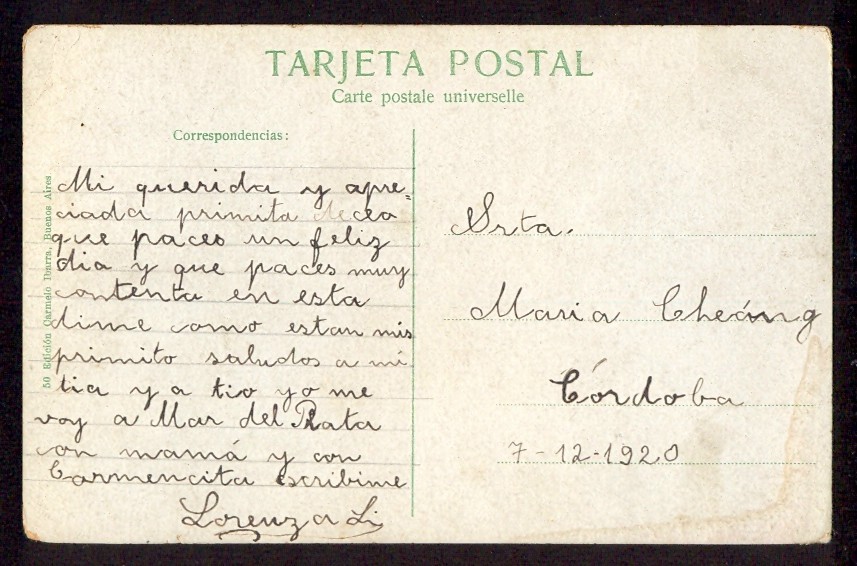 TARJETA POSTAL
Carte postale universelle
Correspondencias:
50 Edición Carmelo Ibarra. Buenos Aires
Mi querida y apre=
ciada primita deceo
que paces un feliz
dia y que paces muy
contenta en esta
dime como estan mis
primito saludos a mi
tia y a tio yo me
voy a Mar del Plata
con mamá y con
Carmencita escribime
Lorenza Li
Srta.
Maria Cheáng
Córdoba
7-12-1920